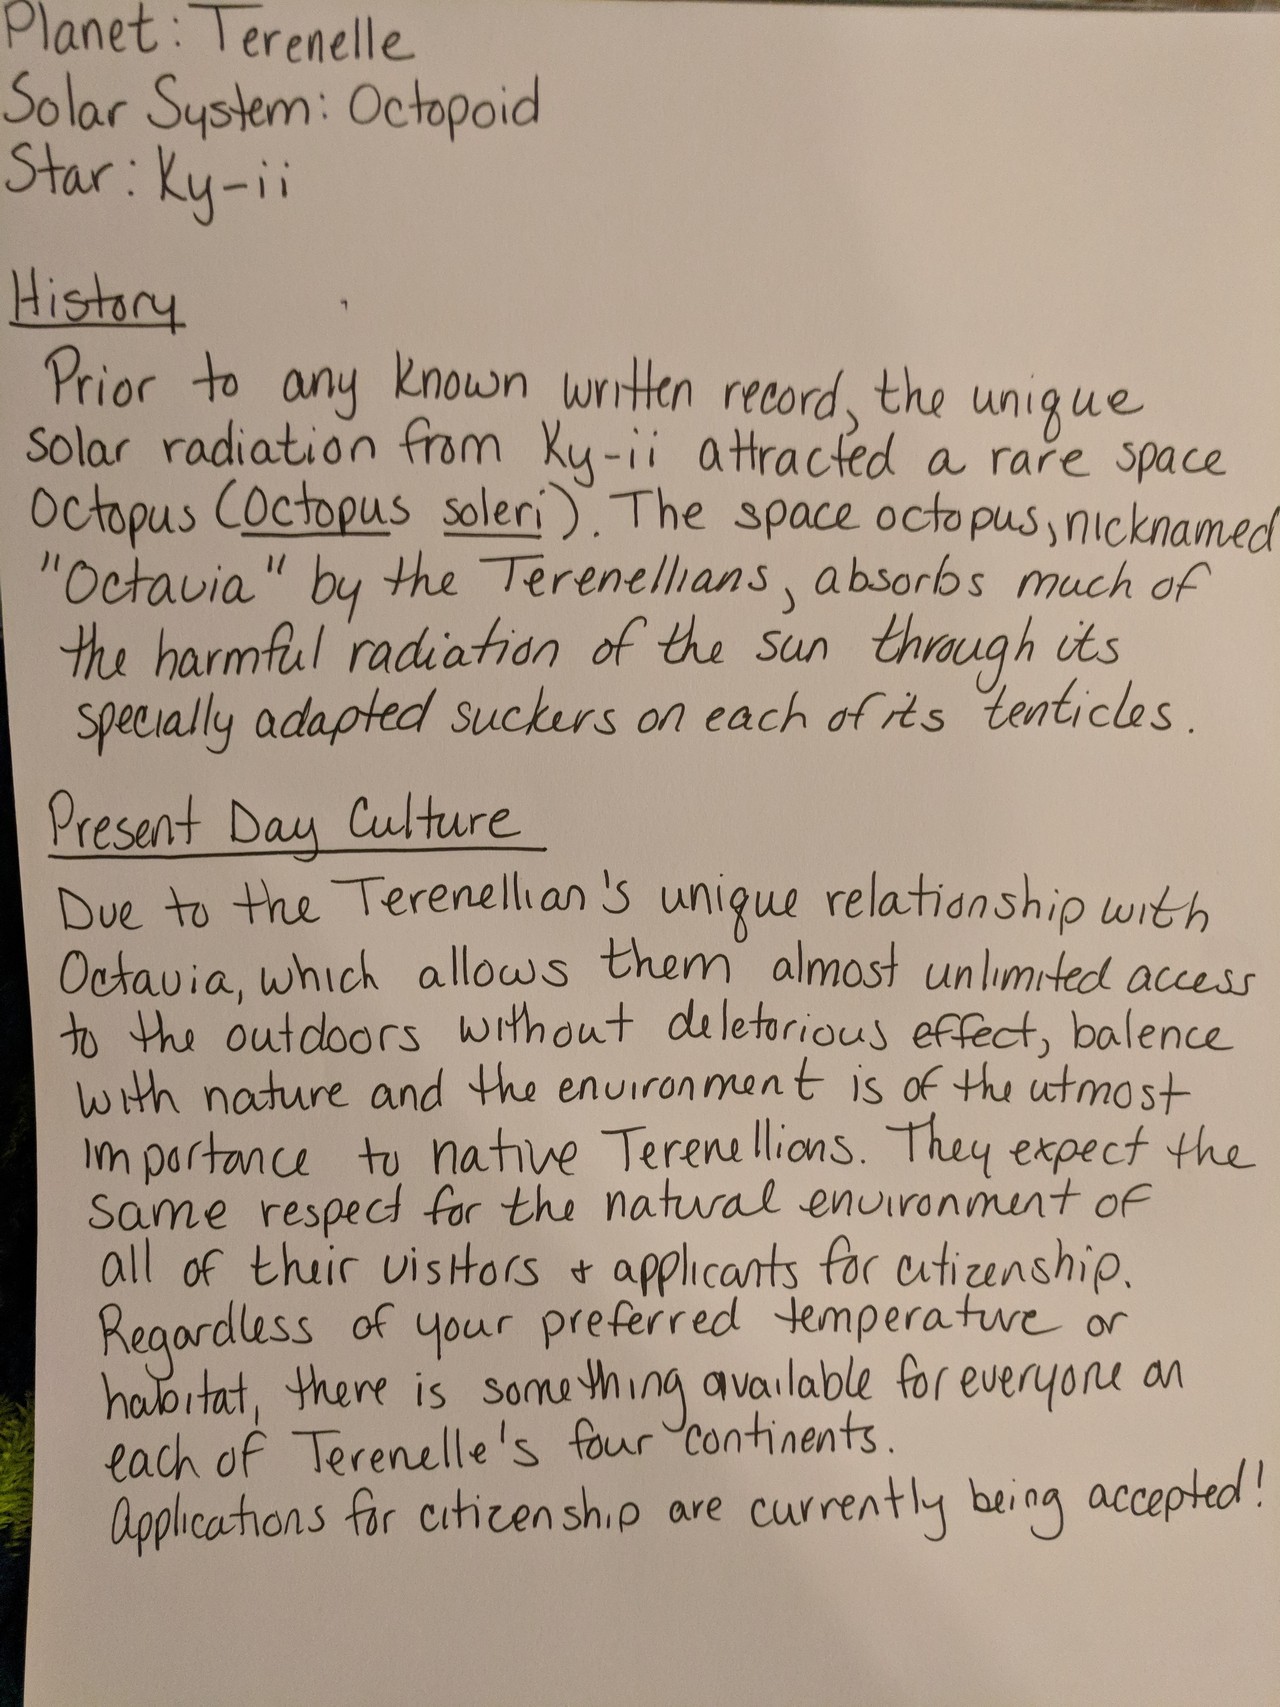 Planet: Terenelle
Solar System: Octopoid
Star: Ky-ii
History
Prior to any known written record, the unique
solar radiation from Ky-ii attracted a rare space
octopus (Octopus soleri). The space octopus, nicknamed
"Octavia" by the Terenellians, absorbs much of
the harmful radiation of the sun through its
specially adapted suckers on each of its tenticles.
Present Day Culture
Due to the Terenellian's unique relationship with
Octavia, which allows them almost unlimited access
to the outdoors without deletorious effect, balence
with nature and the environment is of the utmost
importance to native Terenellians. They expect the
same respect for the natural environment of
all of their visitors + applicants for citizenship.
Regardless of your preferred temperature or
habitat, there is something available for everyone on
each of Terenelle's four continents.
Applications for citizenship are currently being accepted!